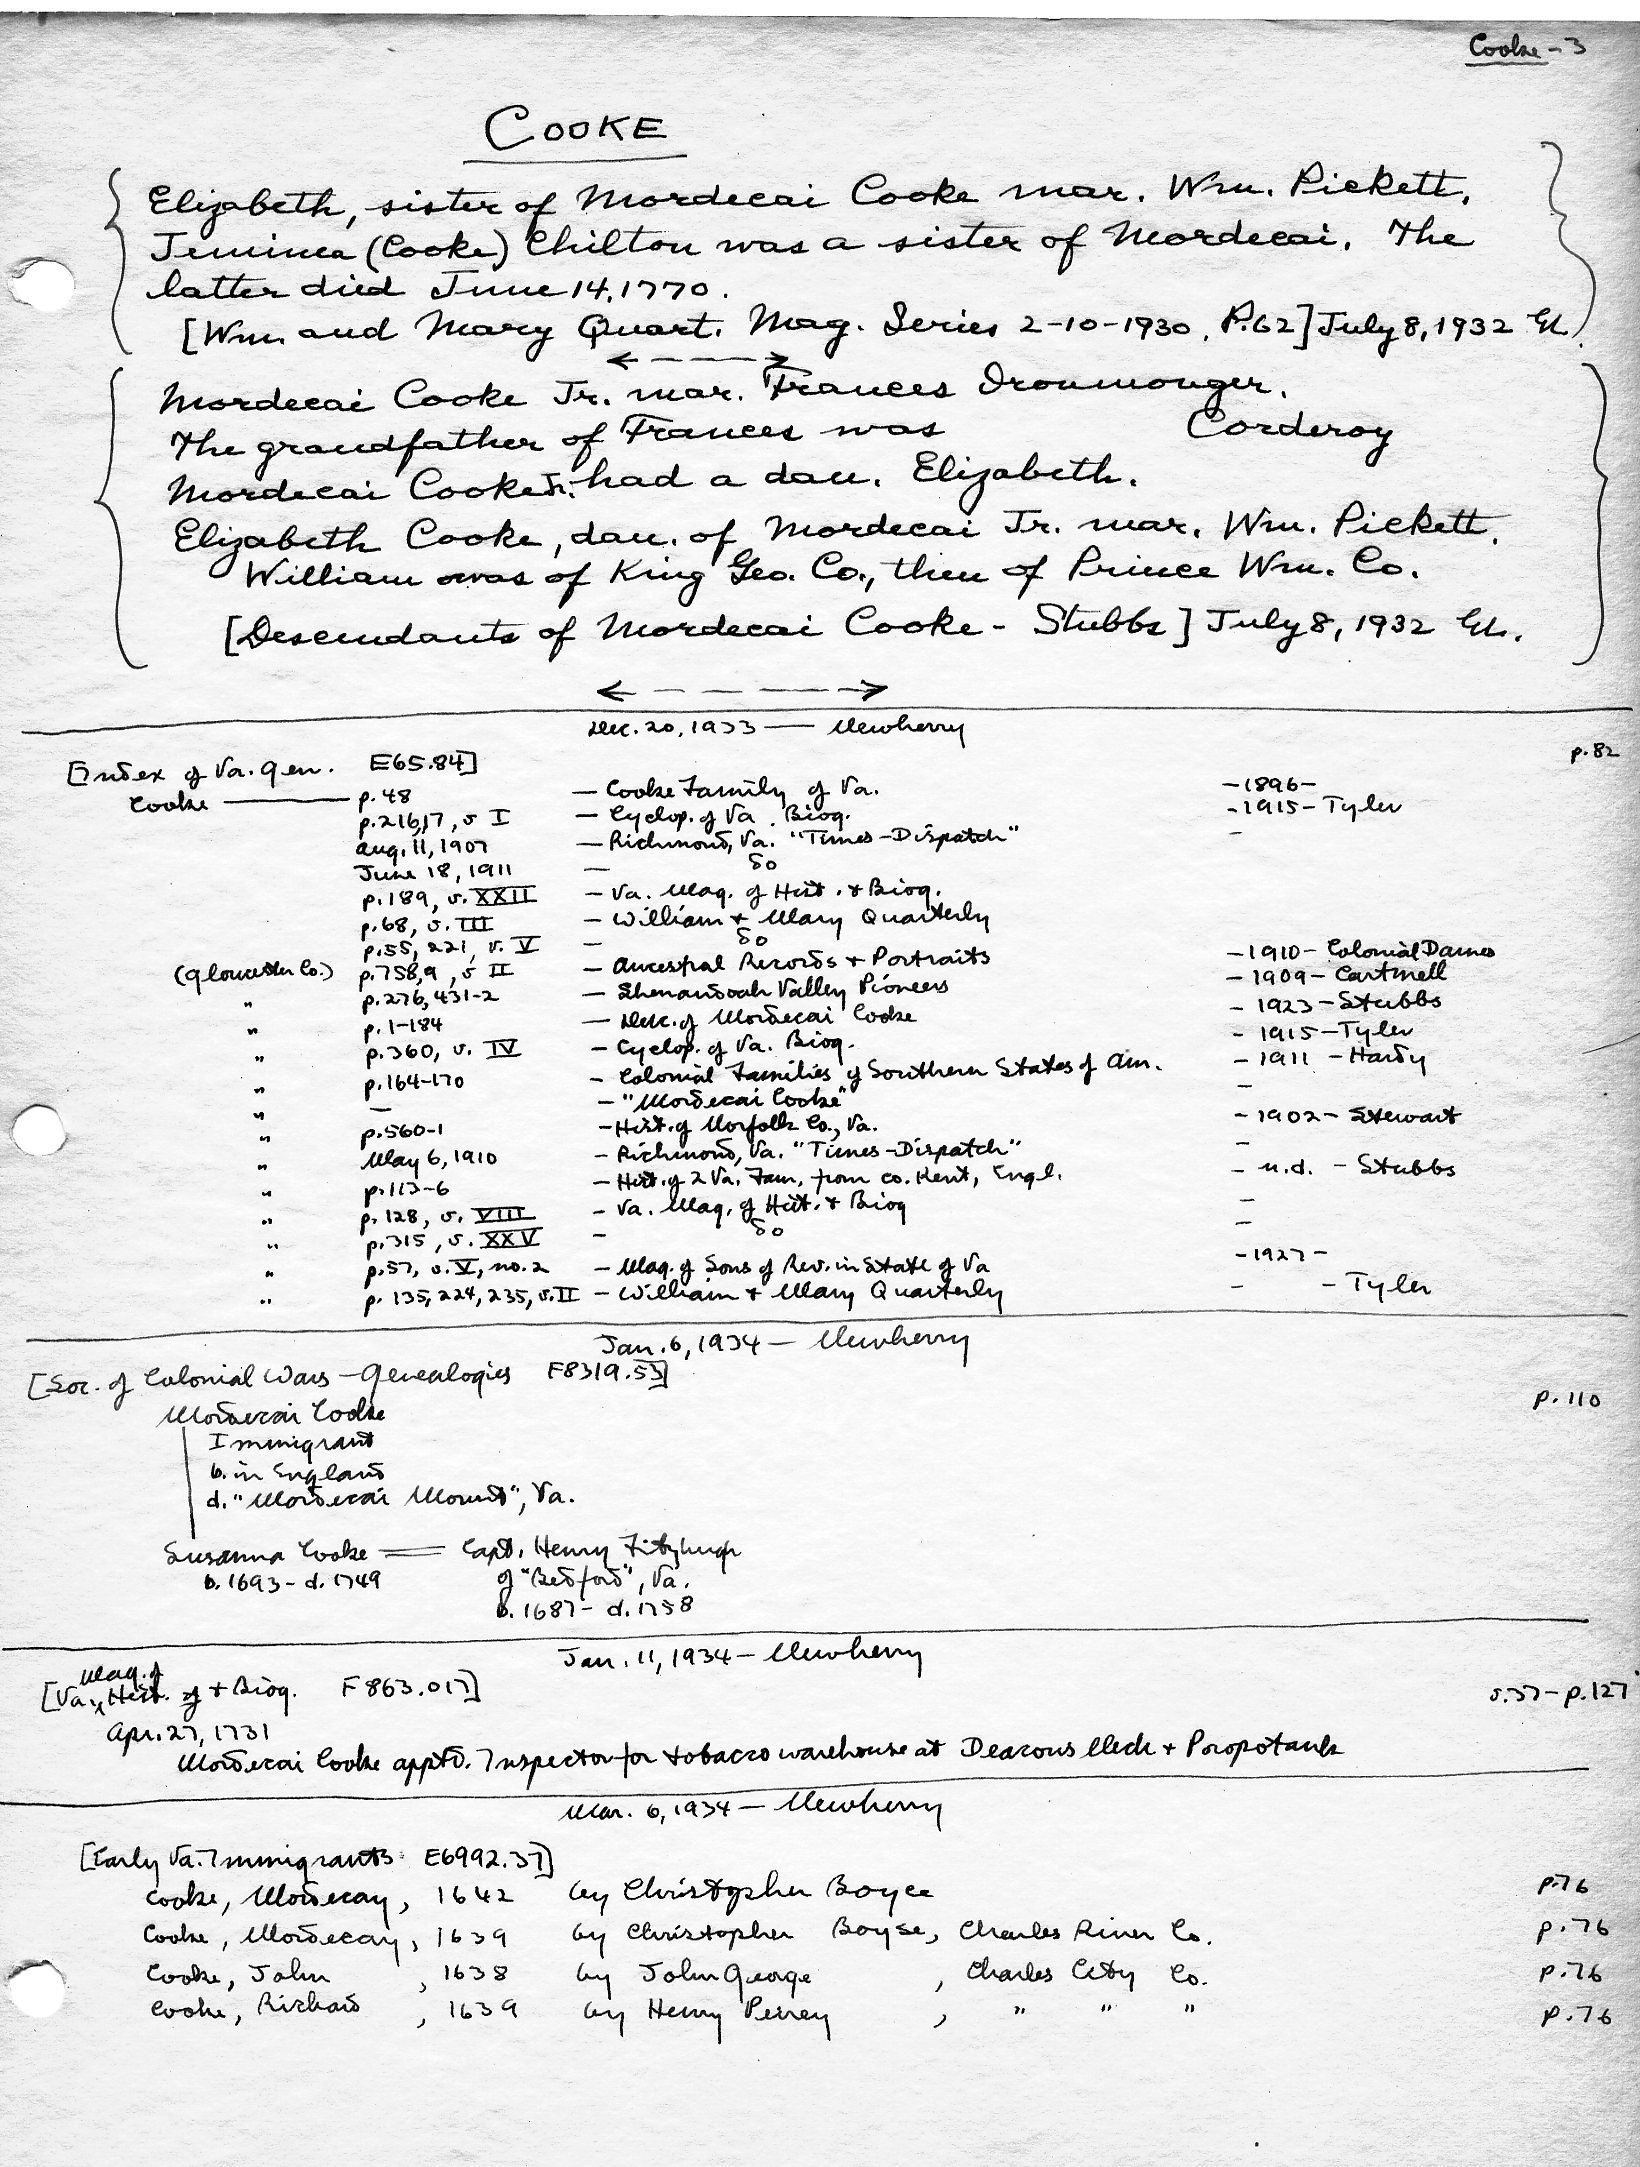 Cooke-3
COOKE
Elizabeth, sister of Mordecai Cooke mar. Wm. Pickett.
Jemimea (Cooke) Chilton was a sister of Mordecai. The
latter died June 14, 1770.
[Wm. and Mary Quart. Mag. Series 2-10-1930. P.62] July 8, 1932
Mordecai Cooke Jr. mar. Frances Ironmonger.
The grandfather of Frances was Corderoy
Mordecai Cooke Jr. had a dau. Elizabeth.
Elizabeth Cooke, dau. of Mordecai Jr. mar. Wm. Pickett.
William was of King Geo. Co., then of Prince Wm. Co.
[Descendants of Mordecai Cooke - Stubbs] July 8, 1932
Dec. 20, 1933 — Newberry
[Index of Va. Gen. E65.84] p.82
Cooke — p. 48 — Cooke Family of Va. -1896-
p. 216,17, v I — Cyclop. of Va. Biog. -1915- Tyler
Aug. 11, 1907 — Richmond, Va. "Times-Dispatch" -
June 18, 1911 — do
p. 189, v. XXII — Va. Mag. of Hist. & Biog.
p. 68, v. III — William & Mary Quarterly
p. 55, 221, v. V — do
(Gloucester Co.) p. 758,9, v II — Ancestral Records & Portraits -1910- Colonial Dames
" p. 276, 431-2 — Shenandoah Valley Pioneers -1909- Cartmell
" p. 1-184 — Desc. of Mordecai Cooke -1923- Stubbs
" p. 360, v. IV — Cyclop. of Va. Biog. -1915- Tyler
" p. 164-170 — Colonial Families of Southern States of Am. -1911- Hardy
" — - "Mordecai Cooke" -
" p. 560-1 - Hist. of Norfolk Co., Va. -1902- Stewart
" May 6, 1910 - Richmond, Va. "Times-Dispatch" -
" p. 113-6 - Hist. of 2 Va. Fam. from co. Kent, Engl. - n.d. - Stubbs
" p. 128, v. VIII - Va. Mag. of Hist. & Biog -
" p. 315, v. XXV - do -
" p. 57, v. V, no. 2 - Mag. of Sons of Rev. in State of Va -1927-
" p. 135, 224, 235, v. II - William & Mary Quarterly - - Tyler
Jan. 6, 1934 — Newberry
[Soc. of Colonial Wars - Genealogies F8319.53] p. 110
Mordecai Cooke
Immigrant
b. in England
d. "Mordecai Mount", Va.
Susanna Cooke = Capt. Henry Fitzhugh
b. 1693 - d. 1749 of "Bedford", Va.
b. 1687 - d. 1758
Jan. 11, 1934 — Newberry
[Va. Mag. of Hist. & Biog. F863.017] v. 37 - p. 127
Apr. 27, 1731
Mordecai Cooke apptd. Inspector for tobacco warehouse at Deacons Neck & Poropotank
Mar. 6, 1934 — Newberry
[Early Va. Immigrants E6992.37]
Cooke, Mordecay, 1642 by Christopher Boyce p. 76
Cooke, Mordecay, 1639 by Christopher Boyse, Charles River Co. p. 76
Cooke, John, 1638 by John George, Charles City Co. p. 76
Cooke, Richard, 1639 by Henry Perrey, " " " p. 76